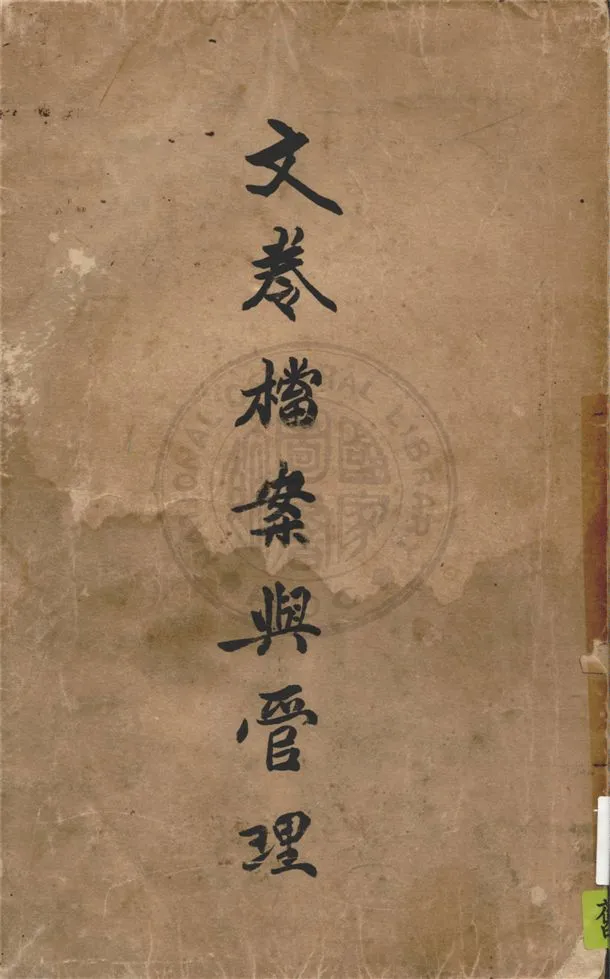 文卷檔案與管理
NATIONAL CENTRAL LIBRARY
國家圖書館
舊